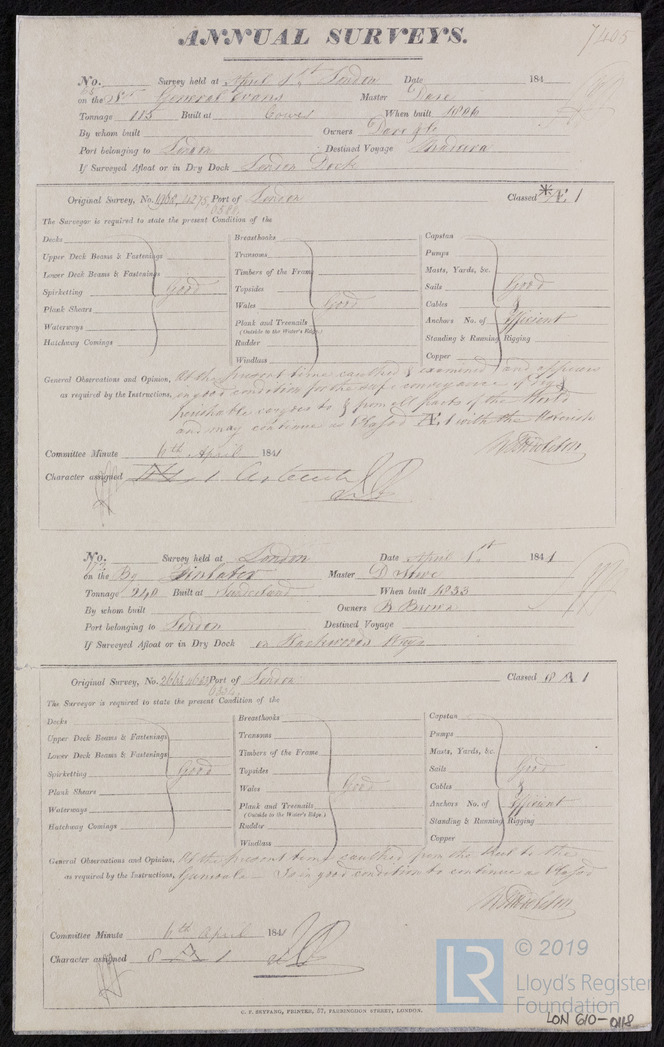 ANNUAL SURVEYS.
7405
No. Survey held at April 1st London Date 184
on the Sr General Evans Master Dare
Tonnage 115 Built at Cowes When built 1806
By whom built Owners Dare & Co
Port belonging to London Destined Voyage Madeira
If Surveyed Afloat or in Dry Dock London Dock
Original Survey, No. Port of London Classed * Æ 1
The Surveyor is required to state the present Condition of the
Decks
Upper Deck Beams & Fastenings
Lower Deck Beams & Fastenings
Spirketting good
Plank Shears
Waterways
Hatchway Comings
Breasthooks
Transoms
Timbers of the Frame
Topsides
Wales Good
Plank and Treenails
(Outside to the Water's Edge)
Rudder
Windlass
Capstan
Pumps
Masts, Yards, &c.
Sails Good
Cables &
Anchors No. of Efficient
Standing & Running Rigging
Copper
General Observations and Opinion, At the present time caulked & examined and appears
as required by the Instructions, in good condition for the safe conveyance of dry &
perishable cargoes to & from all parts of the World
and may continue as Classed Æ 1 with the
Committee Minute 6th April 1841
Character assigned 1
No. Survey held at London Date April 1st 1841
on the Bg Master D
Tonnage 240 Built at Sunderland When built 1833
By whom built Owners R Brown
Port belonging to London Destined Voyage
If Surveyed Afloat or in Dry Dock on Ways
Original Survey, No. Port of London Classed 8 A 1
The Surveyor is required to state the present Condition of the
Decks
Upper Deck Beams & Fastenings
Lower Deck Beams & Fastenings
Spirketting Good
Plank Shears
Waterways
Hatchway Comings
Breasthooks
Transoms
Timbers of the Frame
Topsides
Wales Good
Plank and Treenails
(Outside to the Water's Edge.)
Rudder
Windlass
Capstan
Pumps
Masts, Yards, &c.
Sails Good
Cables &
Anchors No. of Efficient
Standing & Running Rigging
Copper
General Observations and Opinion, At the present time caulked from the Keel to the
as required by the Instructions, Gunwale Is in good condition to continue as Classed
Committee Minute 6th April 1841
Character assigned 8 A 1
C. F. SEYFANG, PRINTER, 57, FARRINGDON STREET, LONDON.
LR
© 2019
Lloyd's Register
Foundation
LON 610-0118